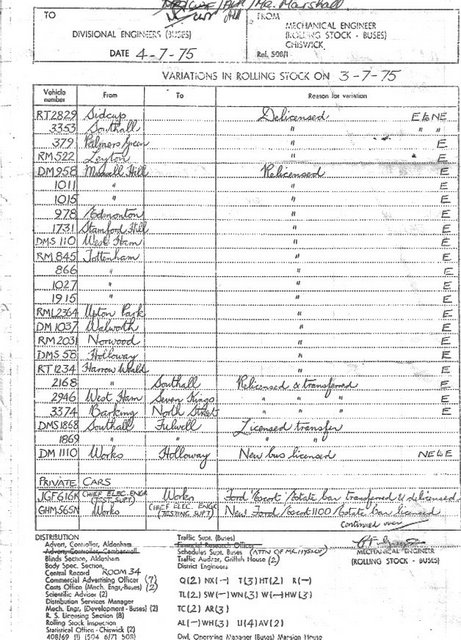 Mr. Marshall
TO
DIVISIONAL ENGINEERS (BUSES)
DATE 4-7-75
FROM
MECHANICAL ENGINEER
(ROLLING STOCK - BUSES)
CHISWICK
Ref. 508/1
VARIATIONS IN ROLLING STOCK ON 3-7-75
Vehicle number From To Reason for variation
RT2829 Sidcup Delicensed E & NE
3353 Southall " " " "
379 Palmers Green " E
RM522 Leyton " E
DM958 Muswell Hill Relicensed E
1011 " " E
1015 " " E
978 Edmonton " E
1731 Stamford Hill " E
DMS 110 West Ham " E
RM845 Tottenham " E
866 " " E
1027 " " E
1915 " " E
RML2364 Upton Park " E
DM 1037 Walworth " E
RM2031 Norwood " E
DMS 58 Holloway " E
RT1234 Harrow Weald " E
2168 " Southall Relicensed & transferred E
2946 West Ham Seven Kings " " " E
3374 Barking North Street " " " E
DMS1868 Southall Fulwell Licensed transfer
1869 " " " "
DM 1110 Works Holloway New bus licensed NE & E
PRIVATE CARS
JGF616K (CHIEF ELEC. ENGR (TEST. SUPT) Works Ford Escort Estate Car transferred & delicensed
GHM565N Works (CHIEF ELEC. ENGR (TESTING SUPT) New Ford Escort 1100 Estate Car licensed
continued over
MECHANICAL ENGINEER
(ROLLING STOCK - BUSES)
DISTRIBUTION
Advert. Controller, Aldenham
Advert. Controller, Camberwell
Blinds Section, Aldenham
Body Spec. Section,
Central Record ROOM 34
Commercial Advertising Officer (7)
Costs Office (Mech. Engr. Buses) (2)
Scientific Adviser (2)
Distribution Services Manager
Mech. Engr. (Development - Buses) (2)
R. S. Licensing Section (8)
Rolling Stock Inspection
Statistical Office - Chiswick (2)
Traffic Supt. (Buses)
Financial Research Office
Schedules Supt. Buses
Traffic Auditor, Griffith House (2)
District Engineers
Q(2) NX(-) T(3) HT(2) R(-)
TL(2) SW(-) WN(3) W(-) HW(3)
TC(2) AR(3)
AL(-) WH(3) U(4) AV(2)
Divl. Operating Manager (Buses) Marsion House